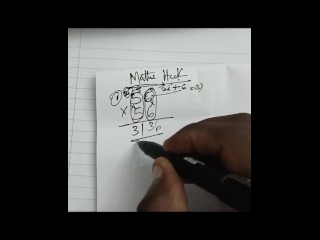 Maths Hack
56
× 56
3136